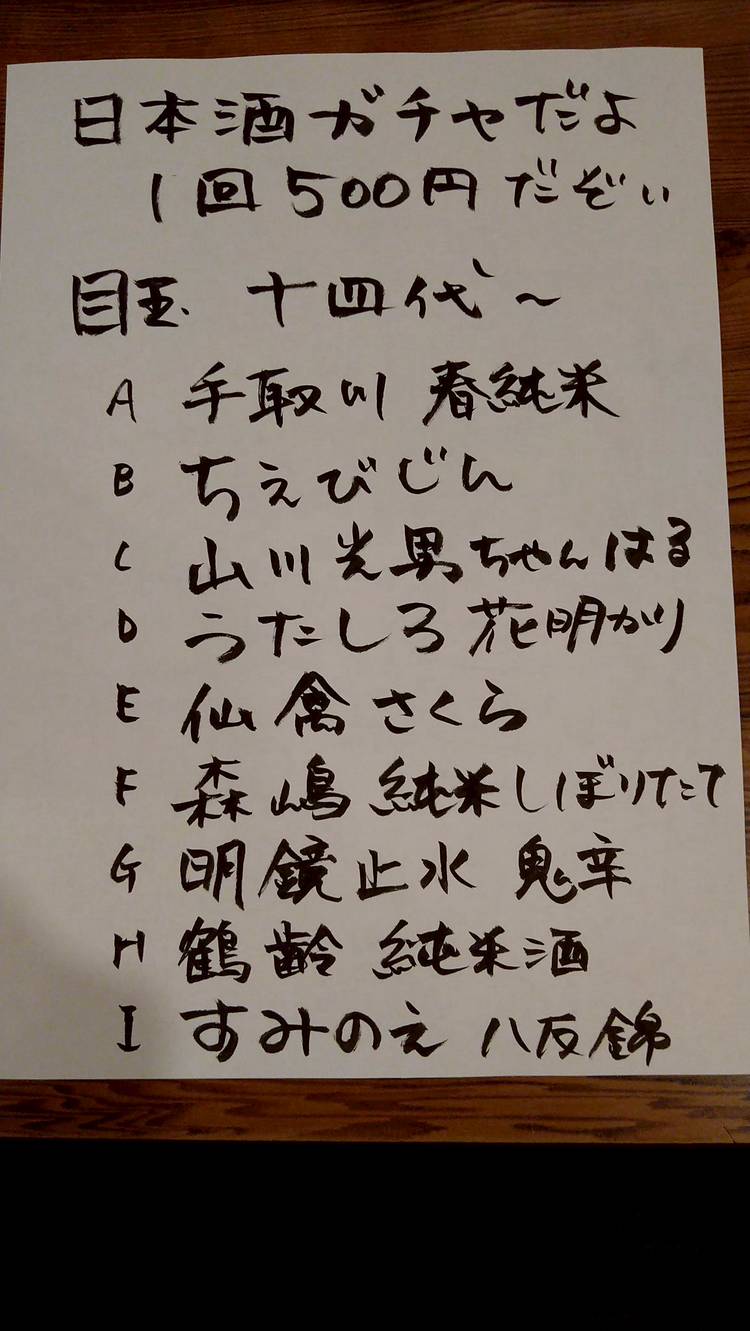 日本酒ガチャだよ
1回500円だぞぃ
目玉 十四代〜
A 手取川 春純米
B ちえびじん
C 山川光男ちゃんはる
D うたしろ 花明かり
E 仙禽 さくら
F 森嶋 純米しぼりたて
G 明鏡止水 鬼辛
H 鶴齢 純米酒
I すみのえ 八反錦